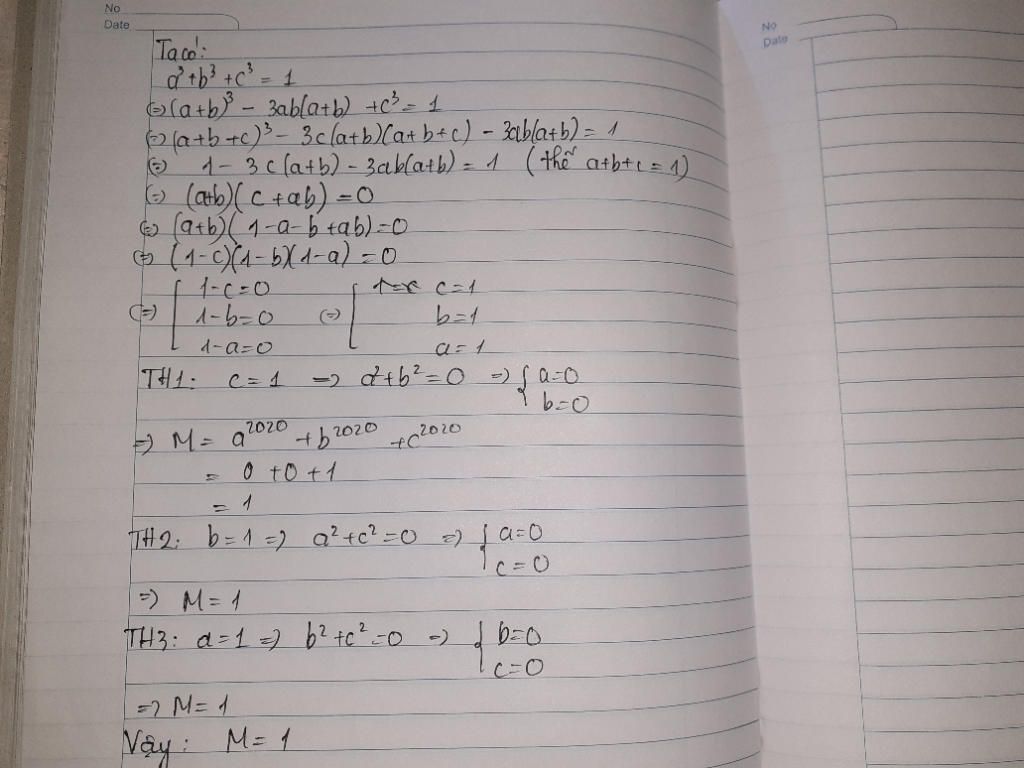 No
Date
No
Date
Ta có:
a³+b³+c³ = 1
(=) (a+b)³ - 3ab(a+b) +c³ = 1
(=) (a+b+c)³ - 3c(a+b)(a+b+c) - 3ab(a+b) = 1
(=) 1 - 3c(a+b) - 3ab(a+b) = 1 (thế a+b+c = 1)
(=) (a+b)(c+ab) = 0
(=) (a+b)(1-a-b+ab) = 0
(=) (1-c)(1-b)(1-a) = 0
(=) [ 1-c=0 (=) [ c=1
1-b=0 b=1
1-a=0 a=1
TH1: c=1 => a²+b²=0 => { a=0
b=0
=> M = a²⁰²⁰ + b²⁰²⁰ + c²⁰²⁰
= 0+0+1
= 1
TH2: b=1 => a²+c²=0 => { a=0
c=0
=> M=1
TH3: a=1 => b²+c²=0 => { b=0
c=0
=> M=1
Vậy: M=1